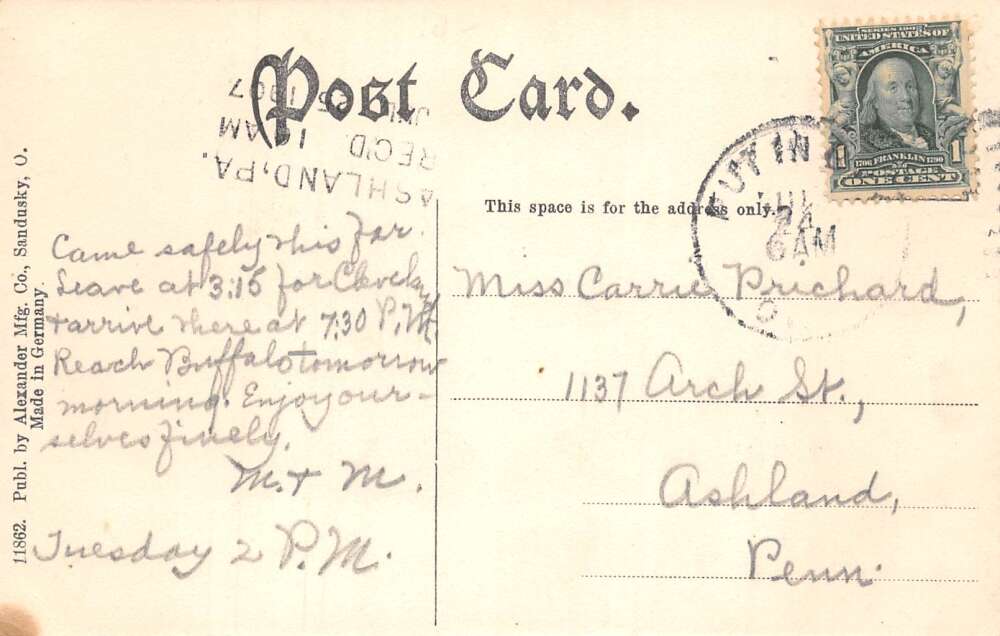 Post Card.
SERIES 1902
UNITED STATES OF
AMERICA
1706 FRANKLIN 1790
1 1
POSTAGE
ONE CENT
PUT IN
JUL
24
6AM
O.
ASHLAND, PA.
REC'D.
1 AM
1907
This space is for the address only.
Came safely this far.
Leave at 3:15 for Cleveland
& arrive there at 7:30 P.M.
Reach Buffalo tomorrow
morning. Enjoy your-
selves finely.
M. & M.
Tuesday 2 P.M.
Miss Carrie Prichard,
1137 Arch St.,
Ashland,
Penn.
11862. Publ. by Alexander Mfg. Co., Sandusky, O.
Made in Germany.